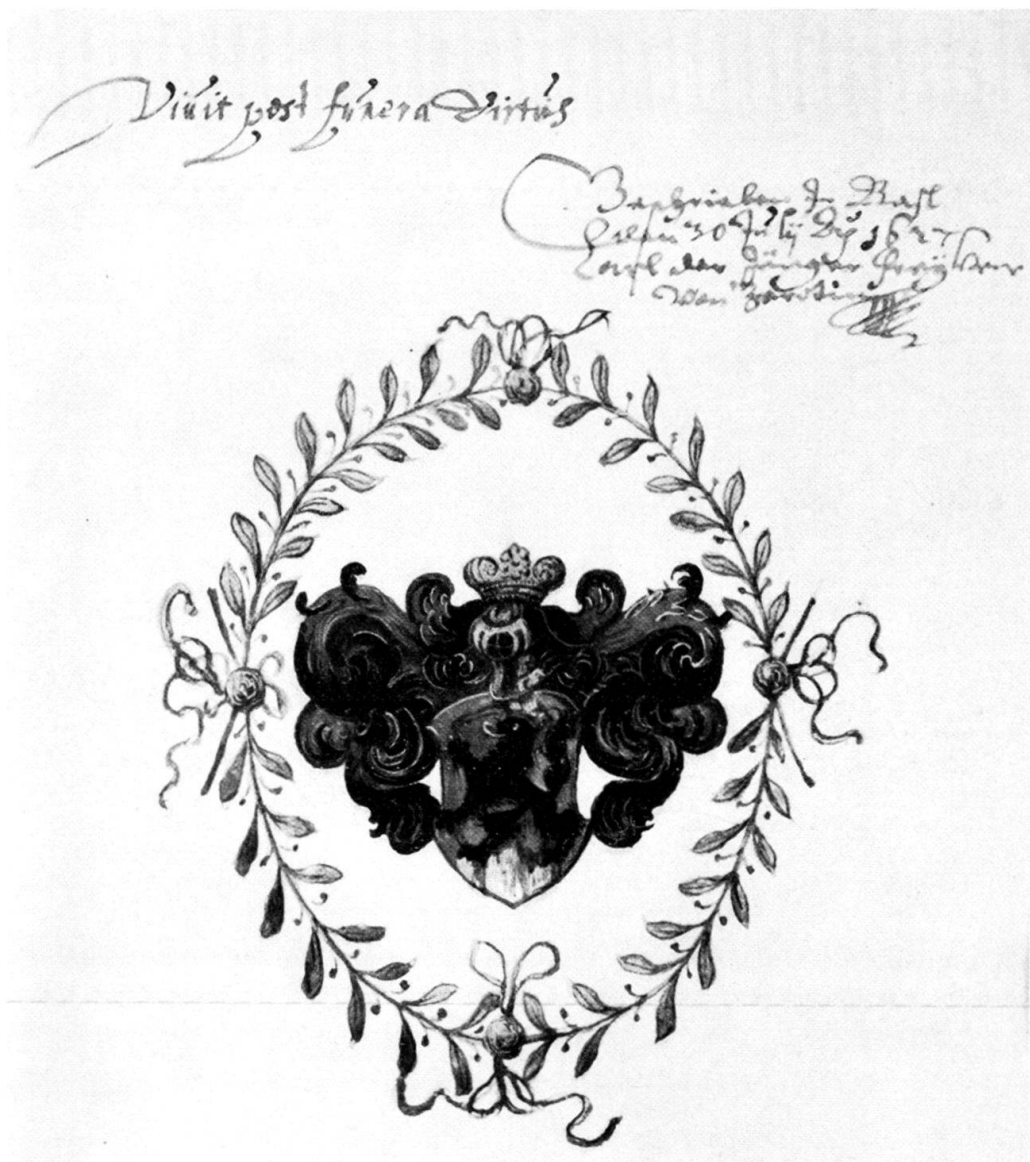 Viuit post funera Virtus
Geschrieben In Basl
den 30 July Ao 1627
Carl der Jünger Freyherr
von Zerotin